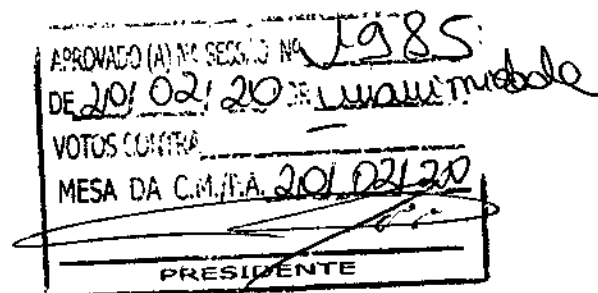 APROVADO (A) NA SESSÃO Nº 1985
DE 20/02/20 DE unanimidade
VOTOS CONTRA —
MESA DA C.M./P.A. 20/02/20
PRESIDENTE